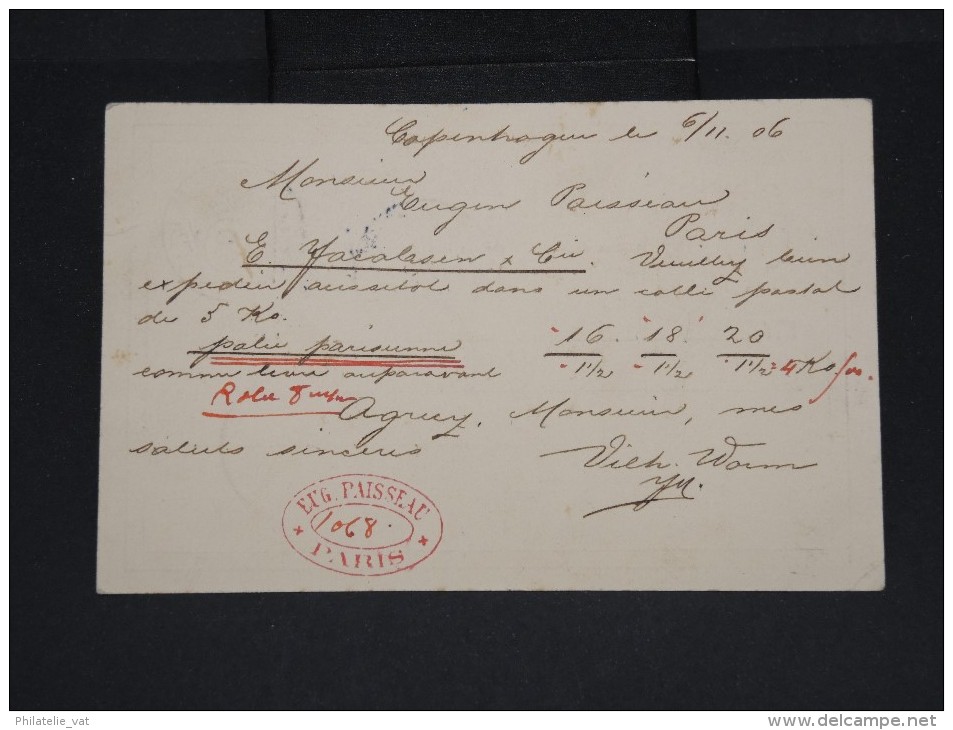 Copenhague le 6/11. 06
Monsieur
Eugen Paisseau
Paris
E. Jacobsen & Cie. Veuillez bien
expedier aussitot dans un colli postal
de 5 Ko.
palie parisienne 16. 18 20
comme livré auparavant 1 1/2 1 1/2 1 1/2 = 4 Ko.
Agreez, Monsieur, mes
saluts sinceres Vilh. Worm
EUG. PAISSEAU
1068.
PARIS
Philatelie_vat
http://www.delcampe.net